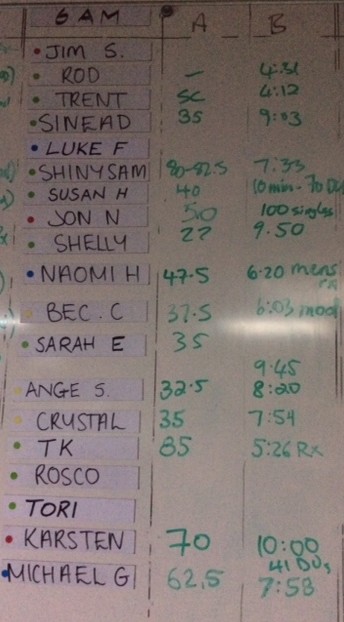 6 AM A B
JIM S.
ROD – 4:31
TRENT SC 4:12
SINEAD 35 9:03
LUKE F
SHINYSAM 80-82.5 7:33
SUSAN H 40 10 min - 70 DU
JON N 50 100 singles
SHELLY 22 9.50
NAOMI H 47.5 6.20 mens
rx
BEC. C 37.5 6:03 mod
SARAH E 35
9.45
ANGE S. 32.5 8:20
CRYSTAL 35 7:54
TK 85 5:26 Rx
ROSCO
TORI
KARSTEN 70 10:00
41 DUs
MICHAEL G 62.5 7:58